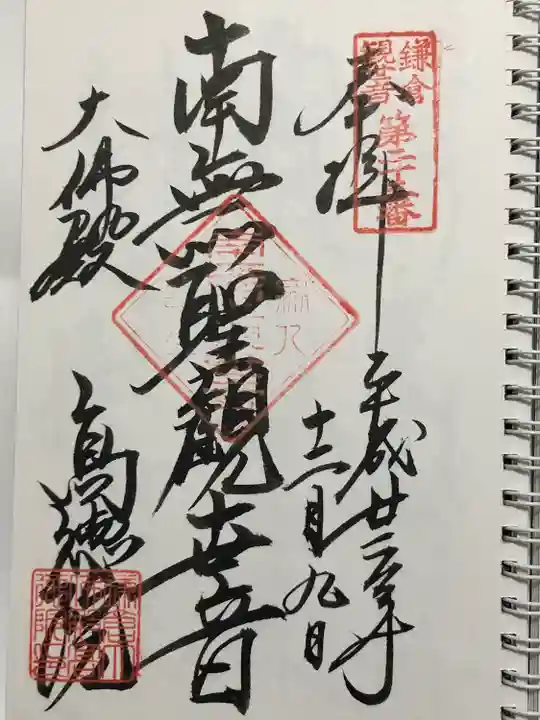 鎌倉
観音
第二十三番
奉拝
平成廿二年
十二月九日
南無聖観世音
大佛殿
高徳院